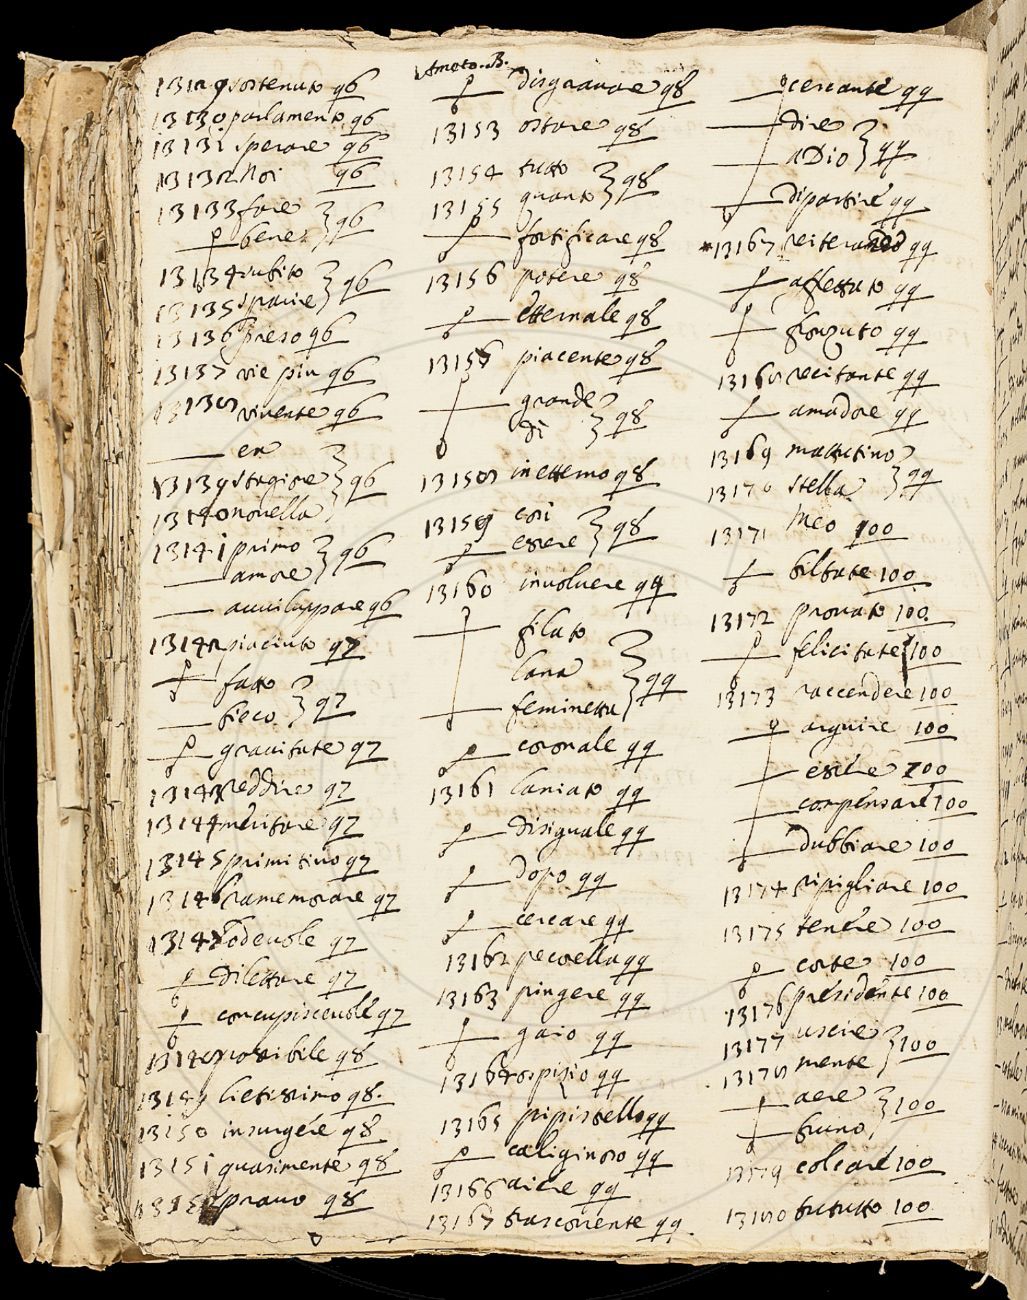 Ameto. B.
13129 sostenuto 96
13130 parlamento 96
13131 sperare 96
13132 Noi 96
13133 fare } 96
bene
13134 subito } 96
13135 sparire
13136 preso 96
13137 vie piu 96
13138 vivente 96
en
13139 stagione } 96
13140 novella
13141 primo } 96
amore
avviluppare 96
13142 piaciuto 97
fatto } 97
bieco
gravitate 97
13143 reddire 97
13144 meritare 97
13145 primitivo 97
13146 ramemorare 97
13147 lodevole 97
dilettare 97
concupiscevole 97
13148 possibile 98
13149 lietissimo 98.
13150 insurgere 98
13151 quasimente 98
13152 pravo 98
disgravare 98
13153 ostare 98
13154 tutto } 98
13155 quanto
fortificare 98
13156 potere 98
etternale 98
1315 piacente 98
grande } 98
di
13158 in etterno 98
13159 cosi } 98
essere
13160 involvere 99
filato
lana } 99
feminetta
coronale 99
13161 laniato 99
disiguale 99
dopo 99
cercare 99
13162 pecorella 99
13163 pingere 99
gaio 99
13164 ospizio 99
13165 pipistrello 99
caliginoso 99
13166 aiere 99
13167 trascorrente 99
cercante 99
dire } 99
aDio
dipartire 99
13167 99
affettato 99
forzuto 99
13168 recitante 99
amadore 99
13169 mattutino } 99
13170 stella
13171 Meo 100
biltate 100
13172 provato 100
felicitate 100
13173 raccendere 100
arguire 100
essere 100
compensare 100
dubbiare 100
13174 ripigliare 100
13175 tenere 100
corte 100
13176 presidente 100
13177 uscire } 100
13178 mente
aere } 100
bruno
13179 colcare 100
13180 tututto 100